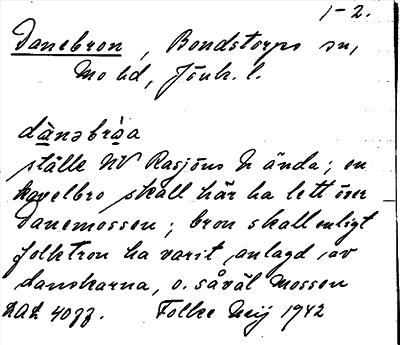 1-2.
Danebron, Bondstorps sn,
Mo hd, Jönk. l.
dànəbrà̱a
ställe NV Rasjöns N ända; en
kavelbro skall här ha lett över
Danemossen; bron skall enligt
folktron ha varit anlagd av
danskarna, o. såväl mossen
4099. Folke Meij 1942